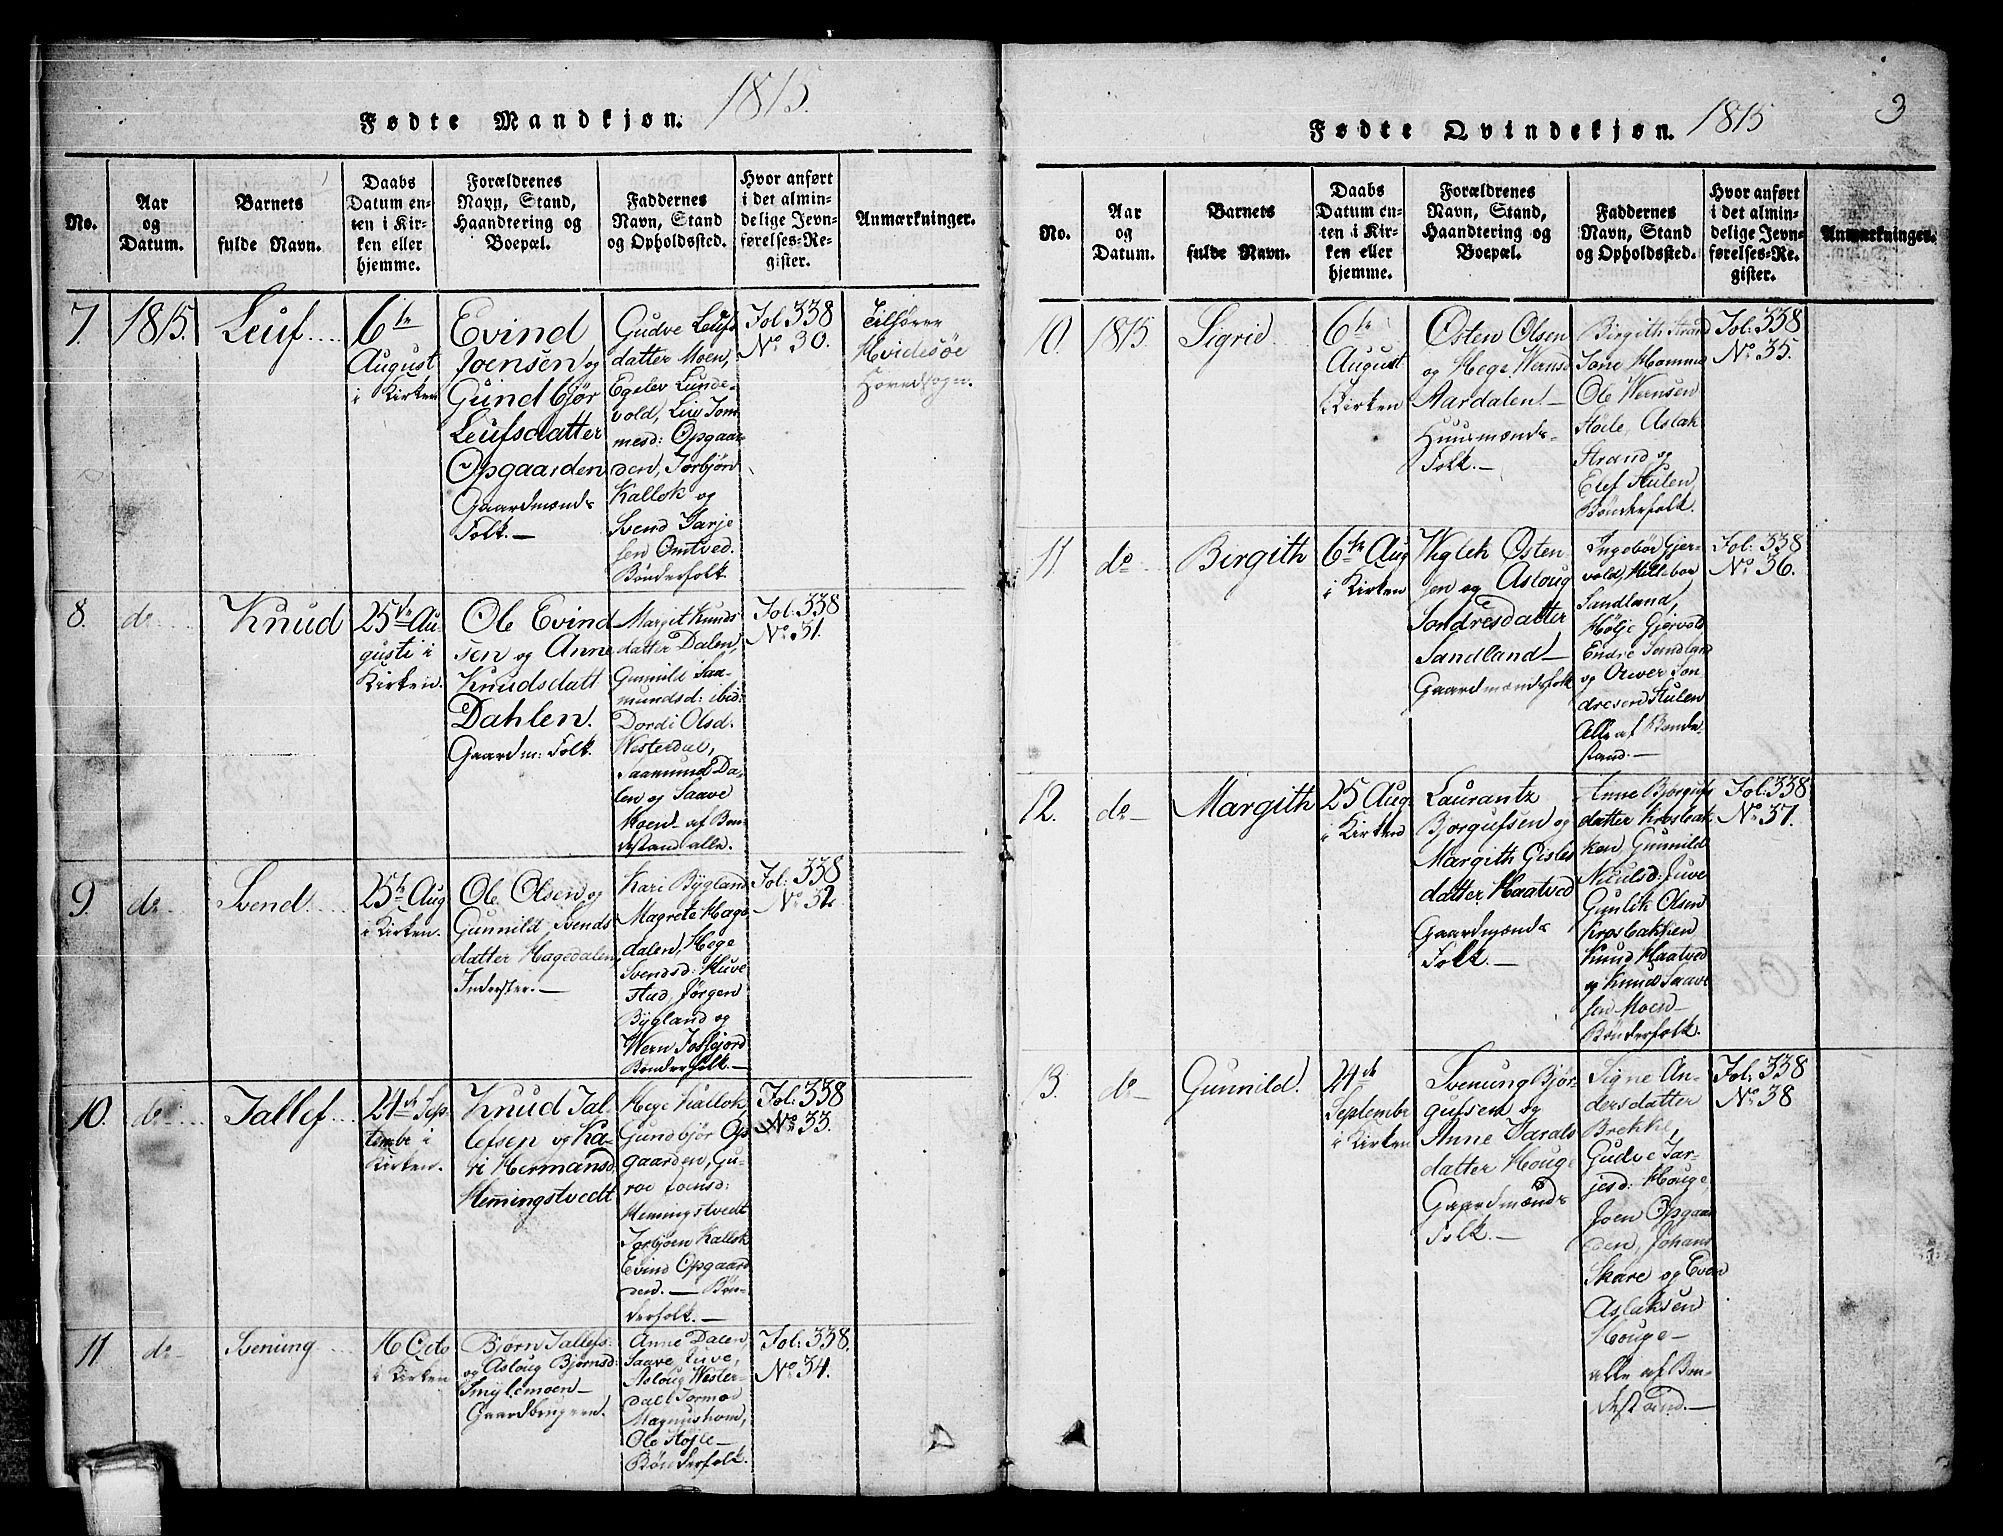 1815.
Fødte Mandkjøn.
No.
Aar
og
Datum.
Barnets
fulde Navn.
Daabs
Datum en-
ten i Kir-
ken eller
hjemme.
Forældrenes
Navn, Stand,
Haandtering og
Boepæl.
Faddernes
Navn, Stand
og Opholdssted.
Hvor anført
i det almin-
delige Jevn-
førelses-Re-
gister.
Anmærkninger.
7.
1815.
Leuf....
6te
August
i Kirken
Evind
Joensen og
Gundbjør
Leufsdatter
Opgaarden
Gaardmænds
Folk.—
Gudve Leufs
datter Moen,
Egelev Lunde-
vold, Liv Tom
mesd: Opgaar
den, Torbjørn
Kallok og
Svend Tarje
sen Omtved.
Bønderfolk.
Fol 338
No 30.
Tilhører
Hvidesøe
Hovedsogn.
8.
do
Knud
25de Au-
gusti i
Kirken.
Ole Evind
sen og Anne
Knudsdatt
Dahlen.
Gaardm: Folk.
Margit Knuds
datter Dalen,
Gunnild Saa-
mundsd: ibid:
Dordi Olsd.
Westerdal,
Saamund Da-
len og Saave
Moen— af Bon-
destand alle.
Fol: 338
No 31.
9.
do
Svend.
25te Aug
i Kirken.
Ole Olsen og
Gunnild Svends
datter Hagedalen,
Inderster.—
Kari Bygland
Magrete Hage
dalen, Hege
Svendsd: Huve
stad, Jørgen
Bygland og
Wern Fosfjord
Bønderfolk—
Fol: 338
No 32
10.
do
Tallef...
24de Sep-
tembr i
Kirken.
Knud Tal-
lefsen og Ka-
ri Hermansd.
Hemingstvedt
Hege Kallok
Gundbjør Op-
gaarden, Gu-
roe Joensd:
Hemingstvedt
Torbjørn Kallok
Evind Opgaard
den.— Bøn-
derfolk.—
Fol: 338
No 33.
11
do—
Svenung
16 Octo
i Kirken
Bjørn Tallefs:
og Asloug Bjørnsd:
Smylemoen—
Gaardbrugere.
Anne Dalen,
Saave Juve,
Asloug Wester-
dal Tormod
Magnushom,
Ole Støjle—
Bønderfolk.
Fol: 338.
No 34.
1815
3
Fødte Qvindekjøn.
No.
Aar
og
Datum.
Barnets
fulde Navn.
Daabs
Datum en-
ten i Kir-
ken eller
hjemme.
Forældrenes
Navn, Stand,
Haandtering og
Boepæl.
Faddernes
Navn, Stand
og Opholdssted.
Hvor anført
i det almin-
delige Jevn-
førelses-Re-
gister.
Anmærkninger.
10.
1815.
Sigrid.
6te
August
i Kirken
Østen Olsen
og Hege Wernsd
Aardalen—
Huusmænds-
Folk.—
Birgith Strand
Tone Homme
Ole Wernsen
Støile, Aslak
Strand og
Elef Stulen
Bønderfolk.
Fol: 338
No 35.
11
do
Birgith
6te Aug
i Kirken
Wiglek Østen
sen og Aslaug
Sondresdatter
Sandland—
Gaardmændsfolk
Ingebor Gjer-
vold, Hellebor
Sandland,
Hølje Gjervold
Endre Sandland
og Anver Son
dresen Stulen
Alle af Bonde-
stand.—
Fol: 338
No 36.
12.
do—
Margith
25 Aug
i Kirken
Laurantz
Bjorgufsen og
Margith Gisles
datter Haatved
Gaardmænds
Folk.—
Anne Bjorgufs
datter Krosbak
ken Gunnild
Niculsd: Juve
Gunlek Olsen
Krosbakken
Knud Haatved
og Knud Saave
sen Moen—
Bønderfolk.
Fol: 338
No 37.
3.
do
Gunnild.
24de
Septembr
i Kirken
Svenung Bjør-
gufsen og
Anne Harals
datter Houge
Gaardmænds
Folk.—
Signe An-
dersdatter
Brekke,
Gudve Tar-
jesd: Houge,
Joen Opgaar
den, Johans
Skare og Even
Aslaksen
Houge—
alle af Bon-
destand.—
Fol: 338
No 38